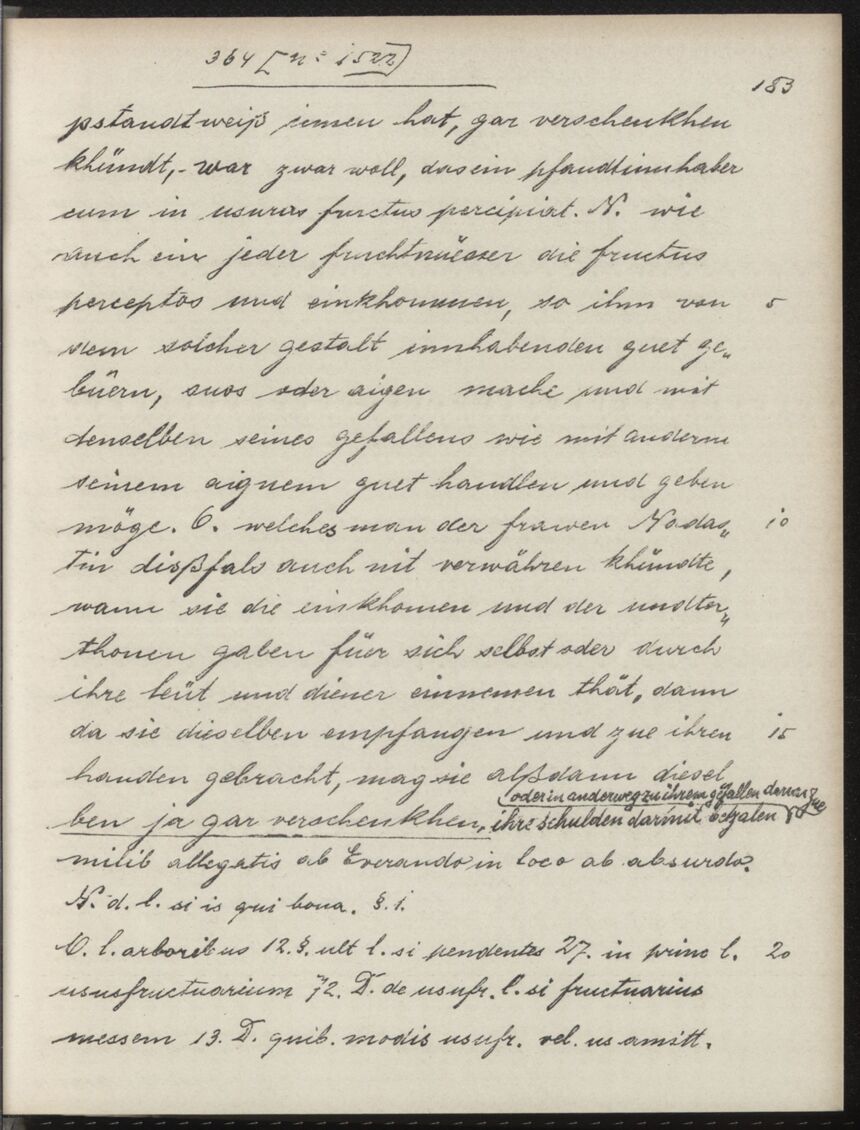 364 [n° 1522]
183
pstandtweiß innen hat, gar verschenkhen
khündt,- war zwar woll, das ein pfandtinnhaber
cum in usuras fructus percipiat. N. wie
auch ein jeder fruchtnüesser die fructus
perceptos und einkhommen, so ihm von 5
dem solcher gestalt innhabenden guet ge„
büern, suos oder aigen mache und mit
denselben seines gefallens wie mit anderm
seinem aignem guet handlen und geben
möge. O. welches man der frawen Nadas„ 10
tin dißfals auch nit verwähren khündte,
wann sie die einkhomen und der undter„
thonen gaben füer sich selbst oder durch
ihre leüt und diener einnemen thät, dann
da sie dieselben empfangen und zue ihren 15
handen gebracht, mag sie alßdann diesel
oder in anderweg zu ihrem gefallen
ben ja gar verschenkhen, ihre schulden darmit bezalen
milib allegatis ab Everando in loco ab absurdo.
N. d. l. si is qui bona. §. 1.
O. l. arboribus 12. §. ult l. si pendentes 27. in princ l. 20
ususfructuarium 72. D. de usufr. l. si fructuarius
messem 13. D. quib. modis usufr. vel. us amitt.